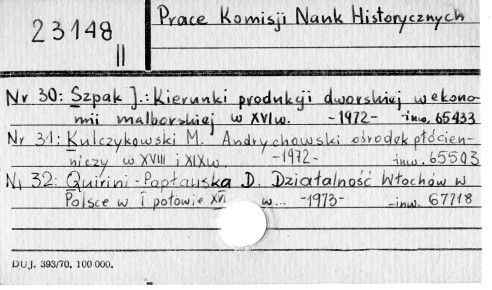 23148
II
Prace Komisji Nauk Historycznych
Nr 30: Szpak J.: Kierunki produkcji dworskiej w ekono-
mii malborskiej w XVI w. -1972- inw. 65433
Nr 31: Kulczykowski M. Andrychowski ośrodek płócien-
niczy w XVIII i XIX w. -1972- inw. 65503
Nr 32: Quirini-Popławska D. Działalność Włochów w
Polsce w I połowie w... -1973- inw. 67718
DUJ. 393/70. 100 000.